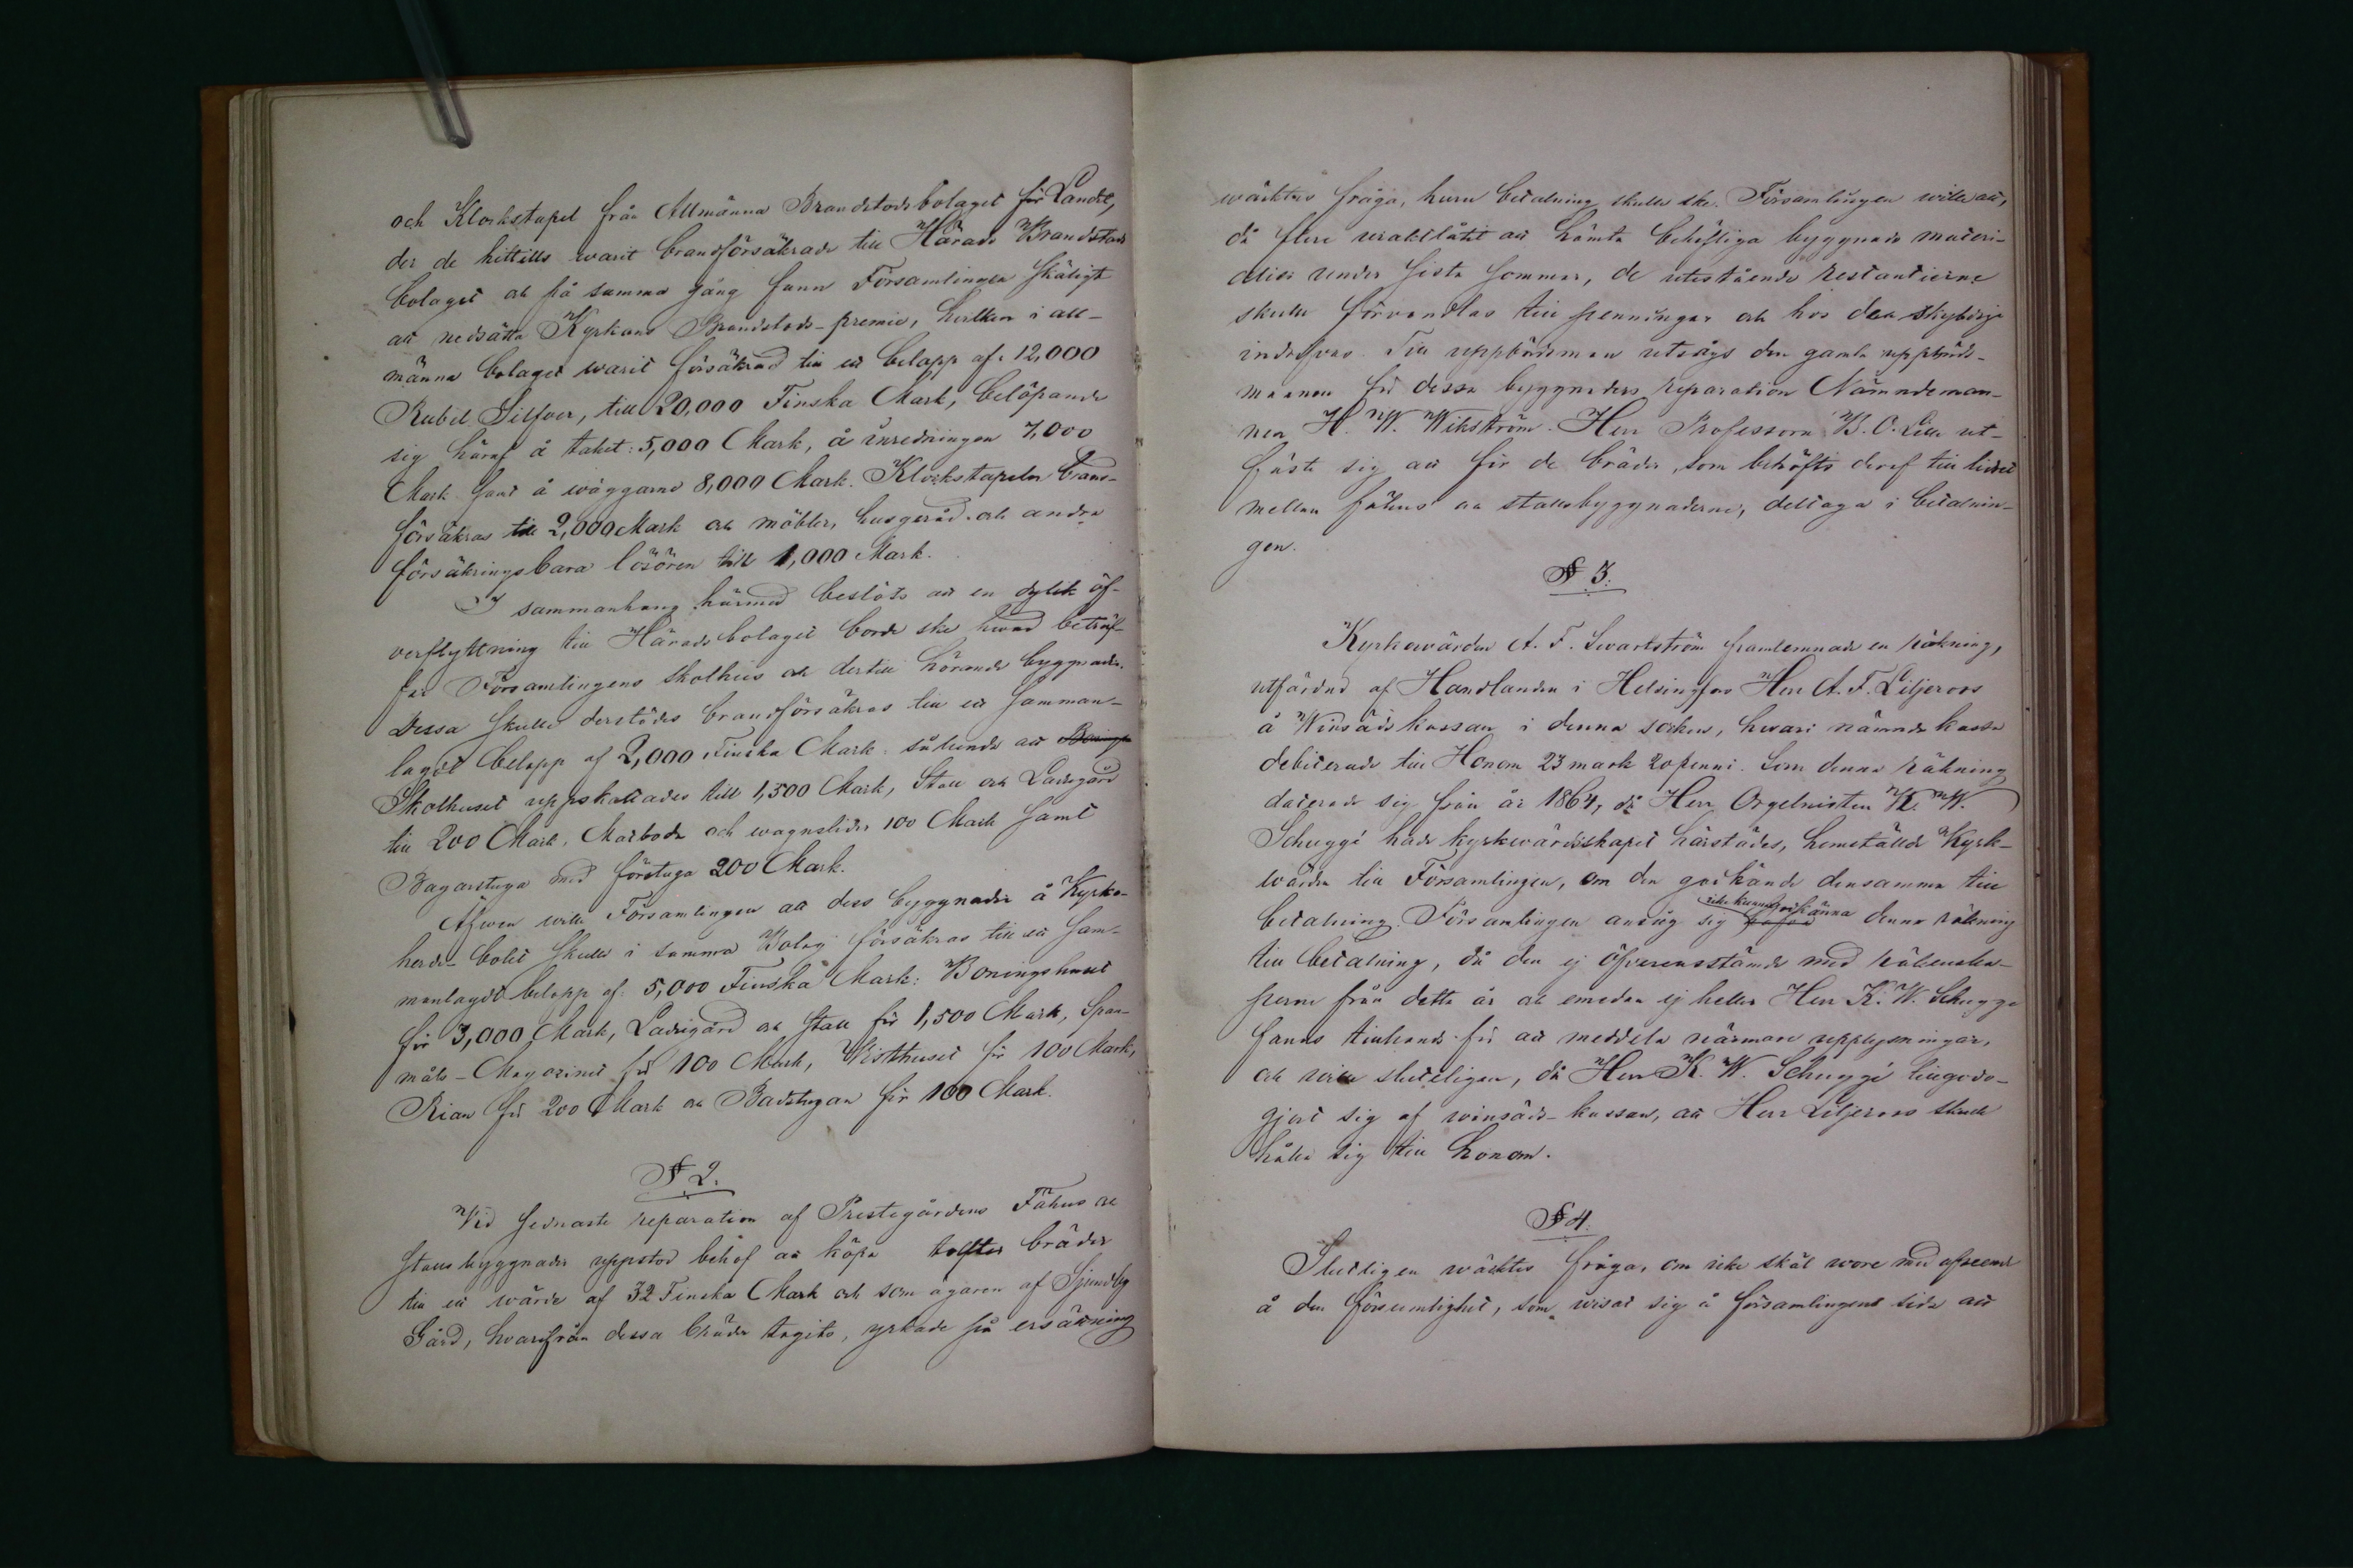 och Klockstapel från Allmänna Brandstodsbolaget för Landet,
der de hittills warit brandförsäkrade till Härads Brandstods
bolaget och på samma gång fann Församlingen skäligt
att nedsätta Kyrkans Brandstods-premie, hvilken i all-
männa bolaget warit försäkrad till ett belapp af: 12,000
Rubel Silfver, till 20,000 Finska Mark, belöpande
sig häraf å taket: 5,000 Mark, å inredningen 7,000
Mark samt å wäggarne 8,000 Mark. Klockstapeln brand-
försäkras till 2,000 Mark och möbler, husgeråd och andra
försäkringsbara lösören till 1,000 Mark.
I sammanhang härmed beslöts att en dylik öf-
verflyttning till Häradsbolaget borde ske hvad beträf-
far Församlingens skolhus och dertill hörande byggnader.
Dessa skulle derstädes brandförsäkras till ett samman-
lagdt belopp af 2,000 Finska Mark: sålunda att
Skolhuset uppskattades till 1,500 Mark, Stall och Ladugård
till 200 Mark, Matboda och wagnslider 100 Mark samt
Bagarstuga med förstuga 200 Mark.
Äfwen wille Församlingen att dess byggnader å Kyrko-
herde-bolet skulle i samma Bolag försäkras till ett sam-
manlagdt belopp af: 5,000 Finska Mark: Boningshuset
för 3,000 Mark, Ladugård och Stall för 1,500 Mark, Span-
måls-Magazinet för 100 Mark, Visthuset för 100 Mark,
Rian för 200 Mark och Badstugan för 100 Mark.
§ 2.
Vid sednaste reparation af Prestegårdens Fähus och
Stallbyggnader uppstod behof att köpa tolfter bräder
till ett wärde af 32 Finska Mark och som ägaren af Sjundby
Gård, hvarifrån dessa bräder tagits, yrkade på ersättning
wäcktes fråga, huru betalning skulle ske. Församlingen wille att,
då flere uraktlåtit att hämta behöfliga byggnads materi-
alier under sista sommar, de utestående restantierne
skulle förvandlas till penningar och hos den skyldige
indrifvas. Till uppbördsman utsågs den gamla uppbörds-
mannen för dessa byggnaders reparation Nämndeman-
nen H. W. Wikström. Herr Professorn B. O. Lille ut-
fäste sig att för de bräder, som behöfts deraf till lidret
mellan fähus och stallsbyggnaderne, deltaga i betalnin-
gen.
§ 3.
Kyrkowärden A. F. Swartström framlemnade en räkning,
utfärdad af Handlanden i Helsingfors Herr A. F. Liljeroos
å Winsädskassan i denna socken, hwari nämnde kassa
debiterade till Honom 23 mark 20 penni. Som denna räkning
daterade sig från år 1864, då Herr Orgelnisten K. W.
Schuggé hade kyrkwärdskapet härstädes, hemställde Kyrk-
wärden till Församlingen, om den godkände densamma till
betalning. Församlingen ansåg sig icke kunna godkänna denna räkning
till betalning, då den ej öfverensstämde med räkenska-
perne från detta år och emedan ej heller Herr K. W. Schugge
fanns tillhands för att meddela närmare upplysningar,
och wille slutligen, då Herr K. W. Schuggé tillgodo-
gjort sig af winsäds-kassan, att Herr Liljeroos skulle
hålla sig till honom.
§ 4.
Slutligen wäcktes fråga, om icke skäl wore med afseende
å den försumlighet, som wisat sig å församlingens sida att